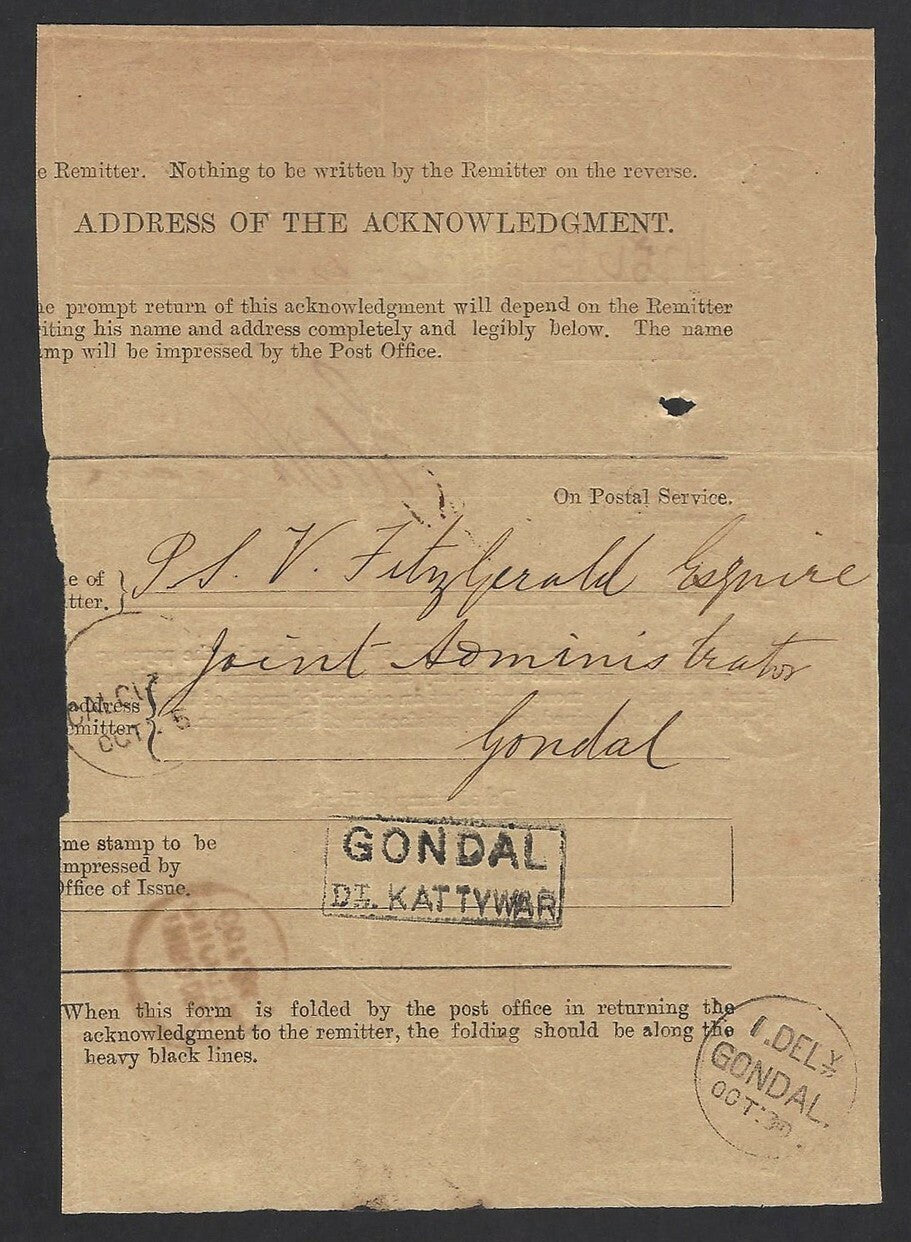 e Remitter. Nothing to be written by the Remitter on the reverse.
ADDRESS OF THE ACKNOWLEDGMENT.
he prompt return of this acknowledgment will depend on the Remitter
iting his name and address completely and legibly below. The name
mp will be impressed by the Post Office.
On Postal Service.
e of
tter.
P. S. V. FitzGerald Esquire
Joint Administrator
address
emitter
OCT 5
Gondal
me stamp to be
mpressed by
Office of Issue.
GONDAL
DT. KATTYWAR
When this form is folded by the post office in returning the
acknowledgment to the remitter, the folding should be along the
heavy black lines.
1.DELY
GONDAL.
OCT.30